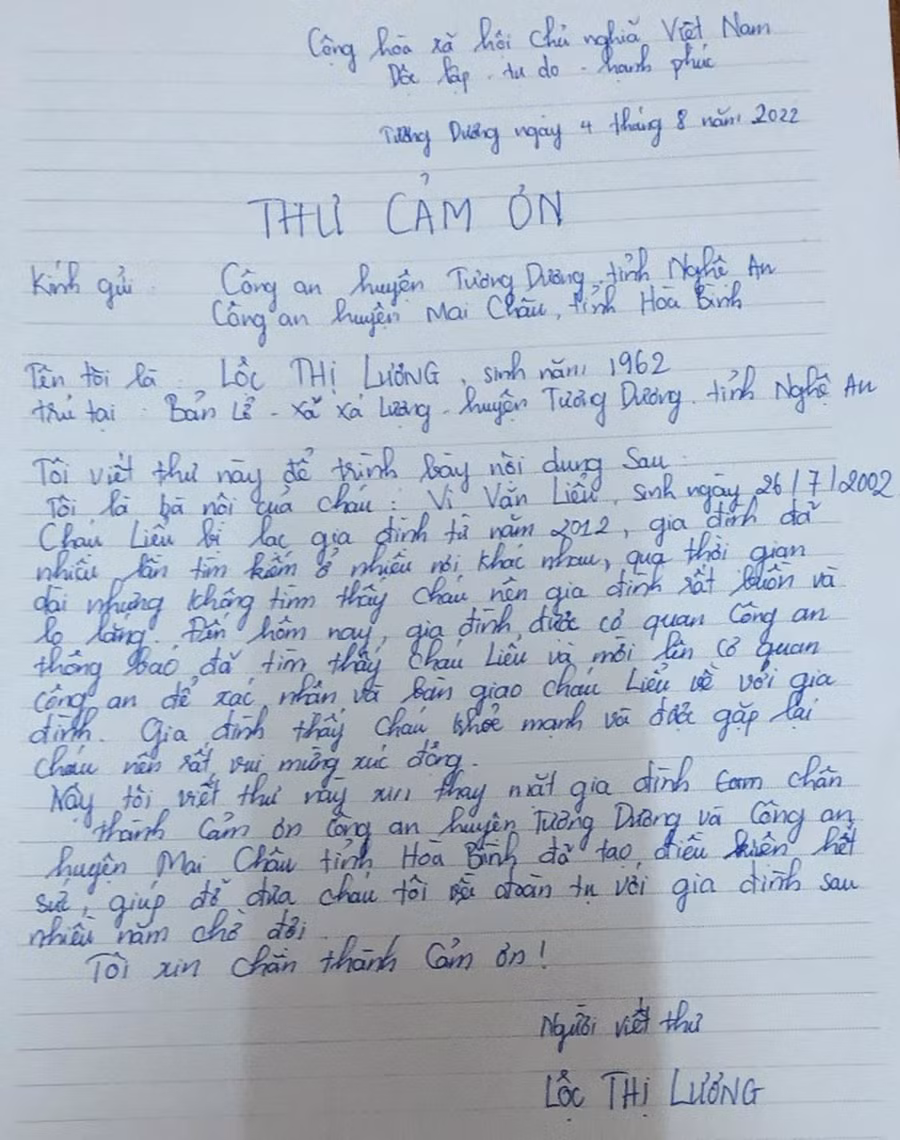 Cộng hòa xã hội chủ nghĩa Việt Nam
Độc lập - tự do - hạnh phúc
Tương Dương ngày 4 tháng 8 năm 2022
THƯ CẢM ƠN
Kính gửi: Công an huyện Tương Dương, tỉnh Nghệ An
Công an huyện Mai Châu, tỉnh Hoà Bình
Tên tôi là: LÔC THỊ LƯƠNG, sinh năm 1962
trú tại: Bản Lẻ - xã xá Lượng - huyện Tương Dương - tỉnh Nghệ An
Tôi viết thư này để trình bày nội dung sau:
Tôi là bà nội của cháu: Vi Văn Liểu, sinh ngày 26/7/2002
Cháu Liểu bị lạc gia đình từ năm 2012, gia đình đã
nhiều lần tìm kiếm ở nhiều nơi khác nhau, qua thời gian
dài nhưng không tìm thấy cháu nên gia đình rất buồn và
lo lắng. Đến hôm nay, gia đình được cơ quan Công an
thông báo đã tìm thấy cháu Liểu và mời lên cơ quan
công an để xác nhận và bàn giao cháu Liểu về với gia
đình. Gia đình thấy cháu khỏe mạnh và được gặp lại
cháu nên rất vui mừng xúc động.
Nay tôi viết thư này xin thay mặt gia đình cảm chân
thành cảm ơn công an huyện Tương Dương và Công an
huyện Mai Châu tỉnh Hoà Bình đã tạo điều kiện hết
sức, giúp đỡ đưa cháu tôi về đoàn tụ với gia đình sau
nhiều năm chờ đợi.
Tôi xin chân thành cảm ơn!
Người viết thư
LÔC THỊ LƯƠNG